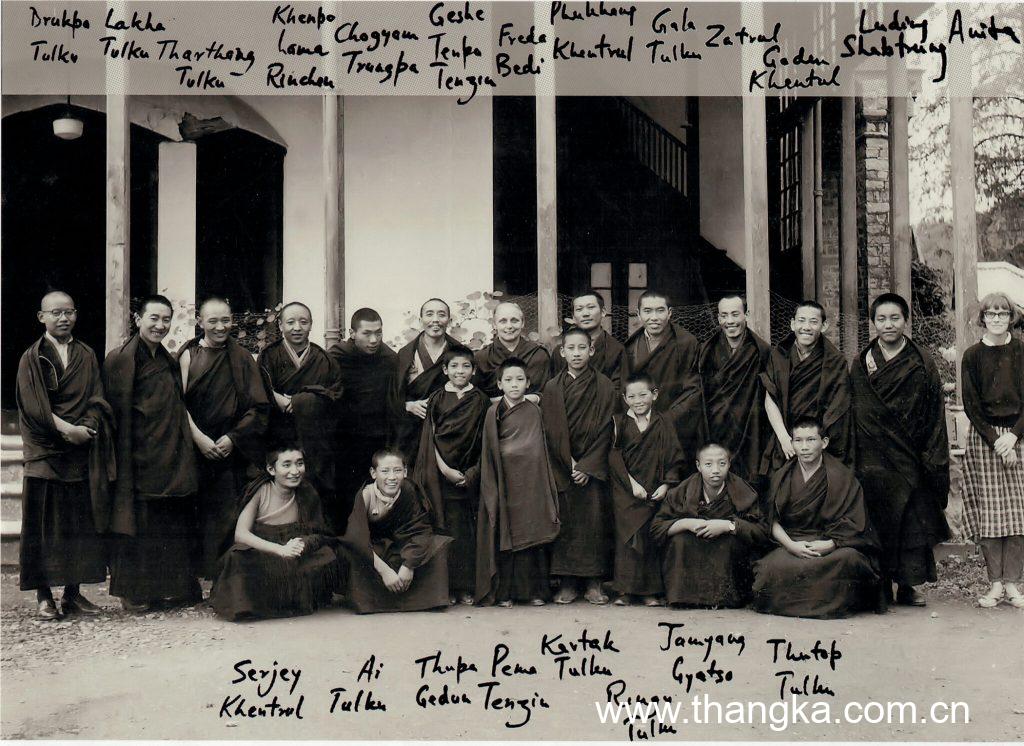 Drukpa Tulku
Lakha Tulku
Tharthang Tulku
Khenpo Lama Rinchen
Chogyam Trungpa
Geshe Tenpa Tenzin
Freda Bedi
Phukhang Khentrul
Gala Tulku
Zatrul
Gaden Khentrul
Luding Shabtrung
Anita
Serjey Khentrul
Ai Tulku
Thupa Gedun
Pema Tenzin
Kartak Tulku
Tulku
Jamyang Gyatso
Thutop Tulku
www.thangka.com.cn